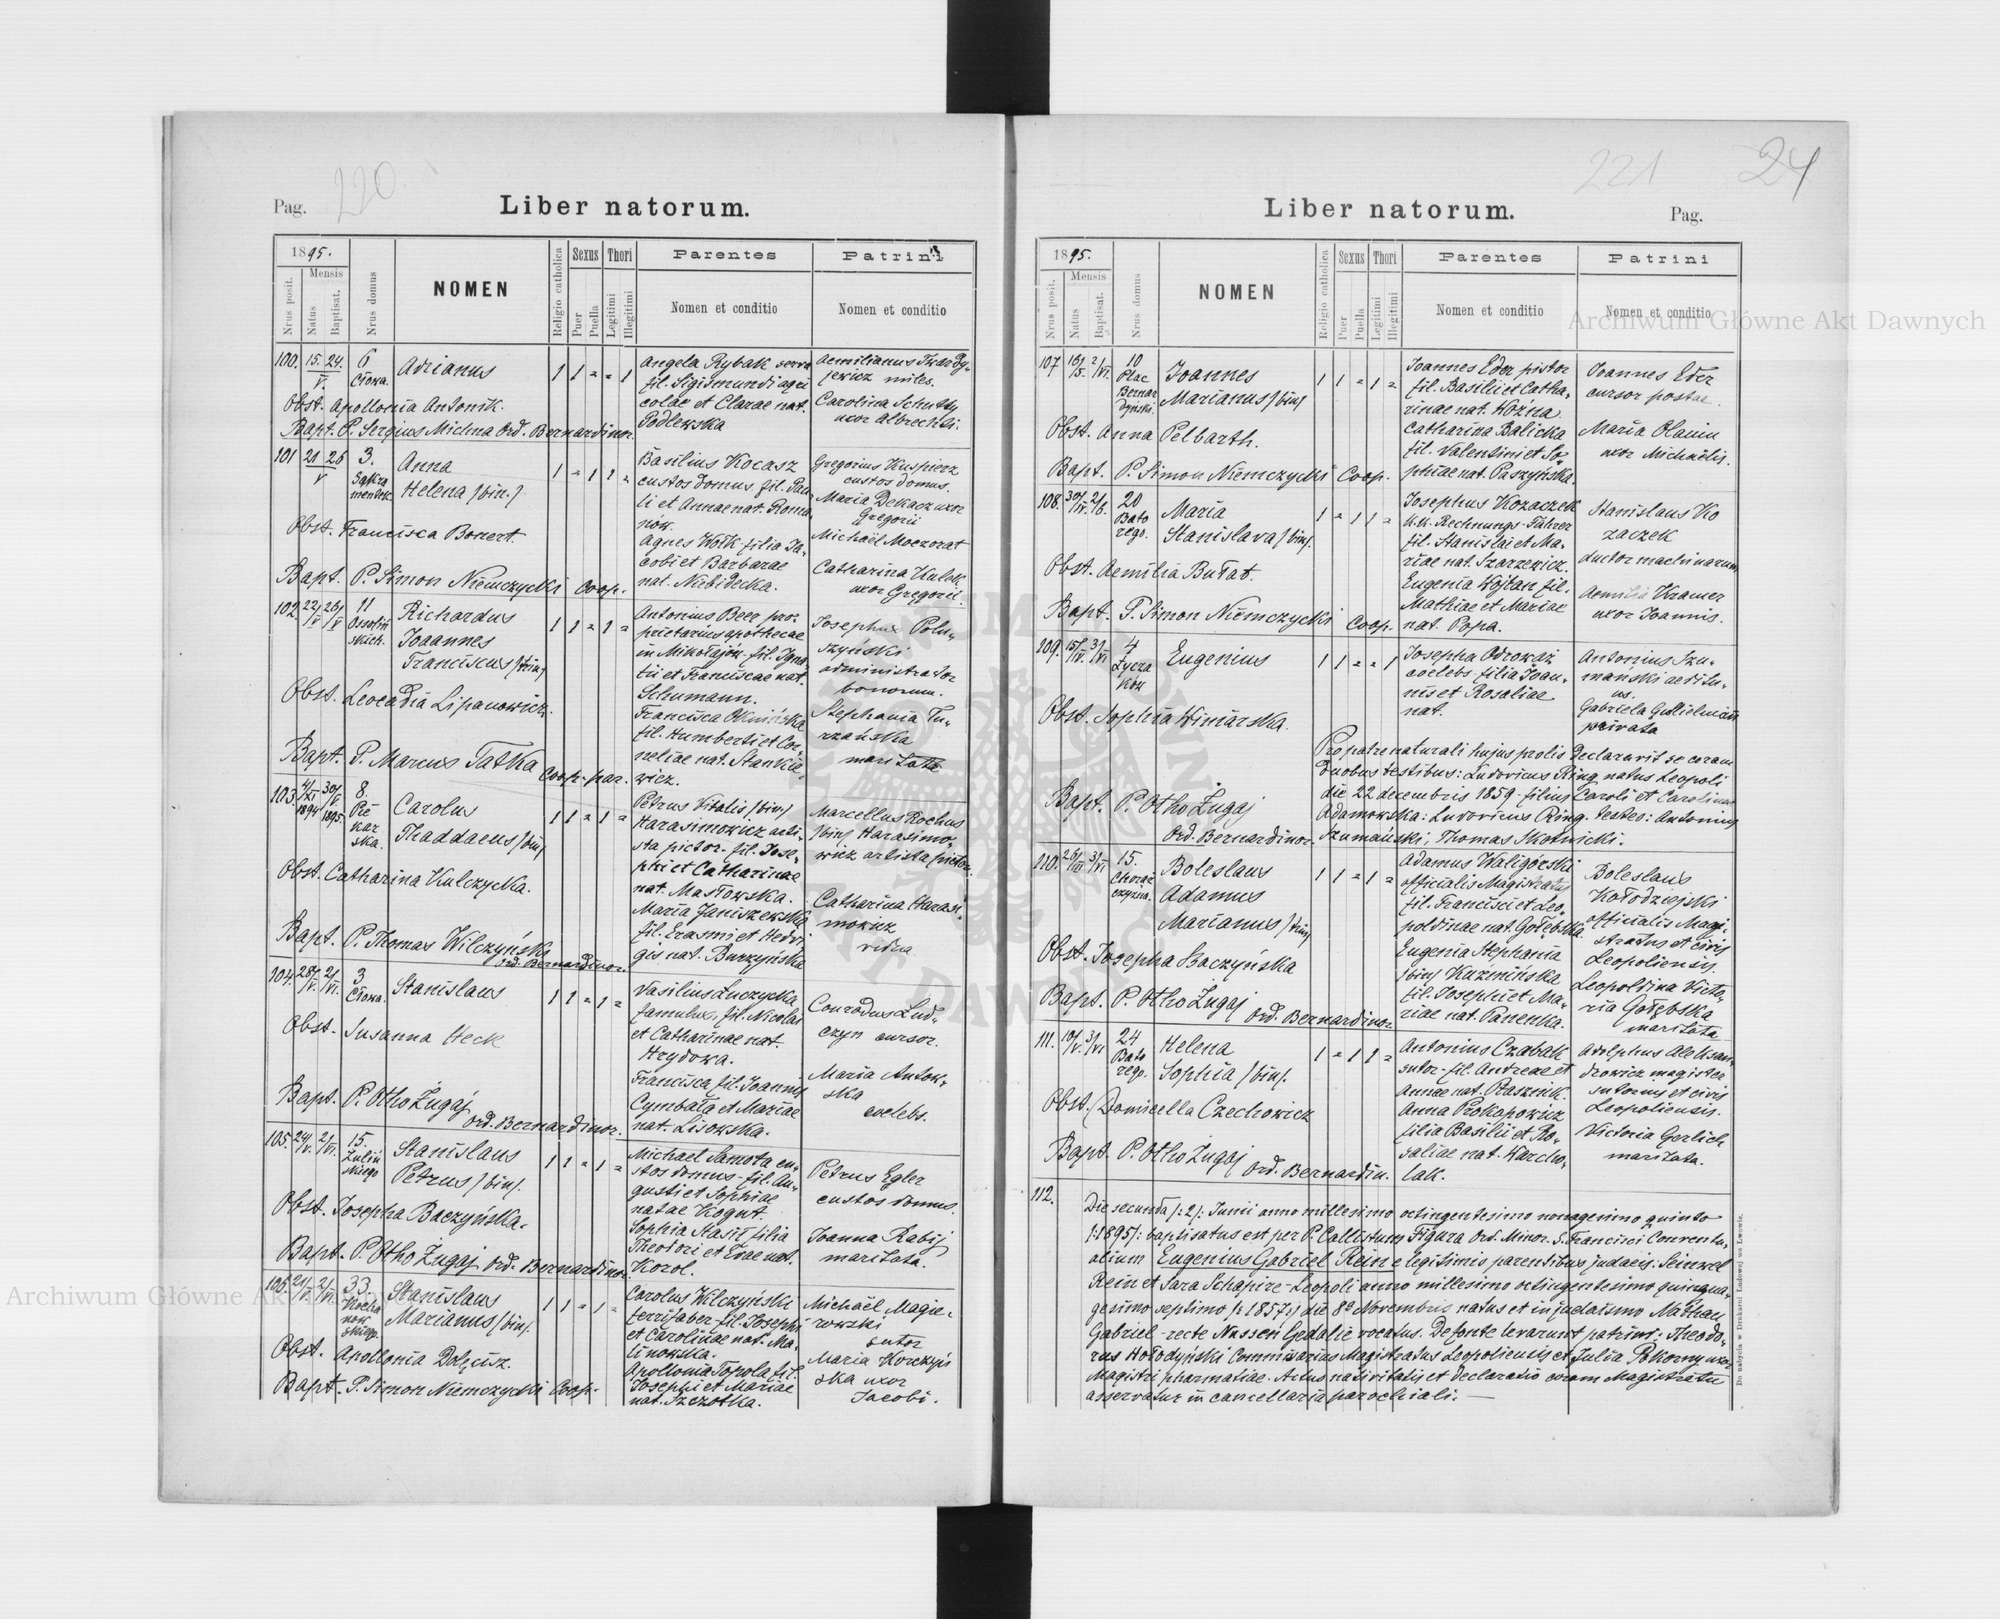 220
Pag.
Liber natorum.
1895.
Nrus posit.
Mensis
Natus
Baptisat.
Nrus domus
NOMEN
Religio catholica
Sexus
Puer
Puella
Thori
Legitimi
Illegitimi
Parentes
Nomen et conditio
Patrini
Nomen et conditio
100. 15. 24. V. 6 Cłowa. Adrianus 1 1 = = 1
Angela Rybak serva
fil. Sigismundi agri
colae et Clarae nat.
Podlewska
Aemilianus Twardy-
jewicz miles.
Carolina Schultz
uxor Albrechti.
Obst. Apollonia Antonik.
Bapt. P. Sergius Michna Ord. Bernardinor.
101 21 26 V 3. Sakra
mentek. Anna
Helena /bin./ 1 = 1 1 =
Basilius Kocasz
custos domus fil. Pau
li et Annae nat. Roma
nów.
Agnes Wołk filia Ja
cobi et Barbarae
nat. Niebidecka.
Gregorius Kuspierz
custos domus.
Maria Dekacz uxor
Gregorii
Michaël Moczorat
Catharina Kulek
uxor Gregorii.
Obst. Francisca Bonert.
Bapt. P. Simon Niemczycki Coop.
102. 22/V 26/V 11
Ossoliń
skich. Richardus
Joannes
Franciscus /trin/ 1 1 = 1 =
Antonius Beer pro-
prietarius apothecae
in Mikołajów. fil. Igna
tii et Franciscae nat.
Schumann.
Francisca Oknińska
fil. Humberti et Cor-
neliae nat. Stankie
wicz.
Josephus Polu-
szyński
administrator
bonorum.
Stephania Tu-
rzańska
maritata
Obst. Leocadia Lipanowicz.
Bapt. P. Marcus Tatka Coop. par.
103. 4/XI 1894 30/V 1895. 8.
Pie
kar
ska. Carolus
Thaddaeus /bin/ 1 1 = 1 =
Petrus Vitalis /bin/
Harasimowicz arti-
sta pictor. fil. Jose-
phi et Catharinae
nat. Masłowska.
Maria Janiszewska
fil. Erasmi et Hedvi
gis nat. Burzyńska
Marcellus Rochus
/bin/ Harasimo-
wicz artista pictor.
Catharina Harasi-
mowicz
vidua
Obst. Catharina Kulczycka.
Bapt. P. Thomas Wilczyński
Ord. Bernardinor.
104. 28/V. 2/VI. 3
Cłowa. Stanislaus 1 1 = 1 =
Vasilius Łuczycka
famulus, fil. Nicolai
et Catharinae nat.
Hrydowa.
Francisca fil. Joannis
Cymbała et Mariae
nat. Lisowska.
Conradus Lud-
czyn cursor.
Maria Antow-
ska
coelebs.
Obst. Susanna Heck
Bapt. P. Otho Żugaj
Ord. Bernardinor.
105. 24/V. 2/VI. 15.
Zuliń
skiego Stanislaus
Petrus /bin/. 1 1 = 1 =
Michael Samota cu-
stos domus - fil. Au-
gusti et Sophiae
natae Kogut.
Sophia Stasił filia
Theodori et Evae nat.
Korol.
Petrus Egler
custos domus.
Joanna Rabij
maritata.
Obst. Josepha Baczyńska.
Bapt. P. Otho Żugaj Ord. Bernardinor.
106. 21/V. 2/VI. 33.
Kocha
now
skiego Stanislaus
Marianus /bin/. 1 1 = 1 =
Carolus Wilczyński
ferrifaber fil. Josephi
et Carolinae nat. Ma-
linowska.
Apollonia Topola fil.
Josephi et Mariae
nat. Szczotka.
Michaël Magie-
rowski
sutor
Maria Korczyń
ska uxor
Jacobi.
Obst. Apollonia Dołżisz.
Bapt. P. Simon Niemczycki Coop.
221
24
Liber natorum.
Pag.
1895.
Nrus posit.
Mensis
Natus
Baptisat.
Nrus domus
NOMEN
Religio catholica
Sexus
Puer
Puella
Thori
Legitimi
Illegitimi
Parentes
Nomen et conditio
Patrini
Nomen et conditio
107 16/5. 2/VI. 10
Plac
Bernar
dyński. Joannes
Marianus /bin/ 1 1 = 1 =
Joannes Eder pistor
fil. Basilii et Catha-
rinae nat. Woźna
Catharina Balicka
fil. Valentini et So-
phiae nat. Paszyńska.
Joannes Eder
cursor postae.
Maria Olaniu
uxor Michaëlis.
Obst. Anna Pelbarth.
Bapt. P. Simon Niemczycki Coop.
108. 30/IV. 2/6. 20
Bato
rego. Maria
Stanislava /bin/. 1 = 1 1 =
Josephus Kozaczek
k.k. Rechnungs-Führer
fil. Stanislai et Ma-
riae nat. Szarzewicz.
Eugenia Wojtan fil.
Mathiae et Mariae
nat. Popa.
Stanislaus Ko
zaczek
ductor machinarum
Aemilia Kramer
uxor Joannis.
Obst. Aemilia Bułat.
Bapt. P. Simon Niemczycki Coop.
109. 15/IV. 3/VI 4
Łycza
ków Eugenius 1 1 = = 1
Josepha Odrowaz
coelebs filia Joan-
nis et Rosaliae
nat.
Antonius Szu-
manski aeditu-
us.
Gabriela Gulielmain
privata
Obst. Sophia Winiarska.
Pro patre naturali hujus prolis declaravit se coram
duobus testibus: Ludovicus Ring natus Leopoli
die 22 decembris 1859 - filius Caroli et Carolinae
Adamowska: Ludovicus Ring. testes: Antonius
Szumański, Thomas Skotnicki.
Bapt. P. Otho Żugaj
Ord. Bernardinor.
110. 26/III 3/VI 15.
Chorąż
czyzna. Boleslaus
Adamus
Marianus /trin/ 1 1 = 1 =
Adamus Waligórski
officialis Magistratus
fil. Francisci et Leo-
poldinae nat. Gołębska.
Eugenia Stephania
/bin/ Kuźmińska
fil. Josephi et Ma-
riae nat. Panenka.
Boleslaus
Kołodziejski
officialis Magi-
stratus et civis
Leopoliensis.
Leopoldina Victo-
ria Gołębska
maritata
Obst. Josepha Baczyńska
Bapt. P. Otho Żugaj Ord. Bernardinor.
111. 10/V. 3/VI 24
Bato
rego. Helena
Sophia /bin/. 1 = 1 1 =
Antonius Czabak
sutor - fil. Andreae et
Annae nat. Ptasznik.
Anna Prokopowicz
filia Basilii et Ro-
saliae nat. Warcho-
lak.
Adolphus Aleksan-
drowicz magister
sutorius et civis
Leopoliensis.
Victoria Gerlich
maritata.
Obst. Domicella Czechowicz
Bapt. P. Otho Żugaj Ord. Bernardin.
112.
Die secunda /:2/: Junii anno millesimo octingentesimo nonagesimo quinto
/:1895/: baptisatus est per P. Callistum Figura Ord. Minor. S. Francisci Conventu-
alium Eugenius Gabriel Rein e legitimis parentibus judaeis: Seinwel
Rein et Sara Schapire - Leopoli anno millesimo octingentesimo quinqua-
gesimo septimo /:1857:/ die 8a Novembris natus et in judaismo Nathan
Gabriel - recte Nussen Gedalie vocatus. De fonte levarunt patrini: Theodo-
rus Hołodyński Commissarius Magistratus Leopoliensis et Julia Pokorny uxor
Magistri pharmatiae. Actus nativitatis et declaratio coram Magistratu
asservatur in cancellaria parochiali. —
Do nabycia w Drukarni Ludowej we Lwowie.
Archiwum Główne Akt Dawnych
Archiwum Główne Akt Dawnych